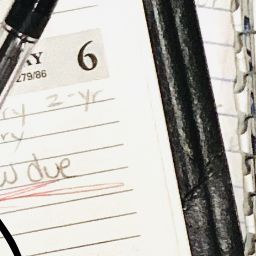 AY 6
279/86
ry 2-yr
ry
w due